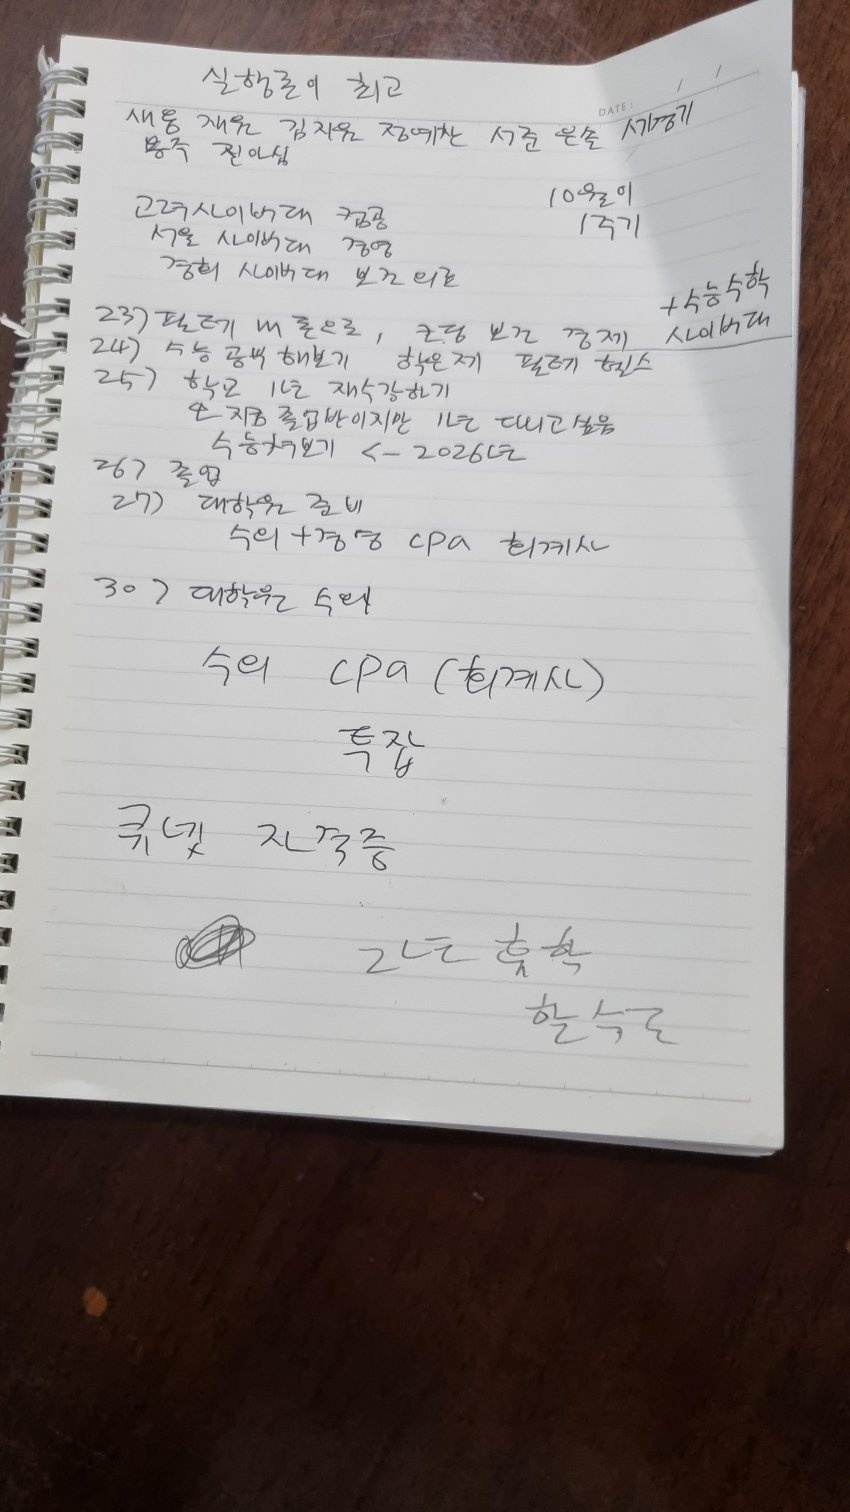 실행론이 최고
DATE: / /
재원 김지원 정예찬 서준 은솔
용주 진아심
10월이
1주기
고려사이버대 컴공
서울 사이버대 경영
경희 사이버대 보건의료
+수능수학
23) 필라테 코딩 보건 경제 사이버대
24) 수능 공부 해보기 학은제 필라테 헬스
25) 학교 1년 재수강하기
지금 졸업반이지만 1년 다니고싶음
수능쳐보기 <- 2026년
26) 졸업
27) 대학원 준비
수의+경영 CPA 회계사
30) 대학원 수의
수의 CPA (회계사)
투잡
큐넷 자격증
2년 휴학
할수로